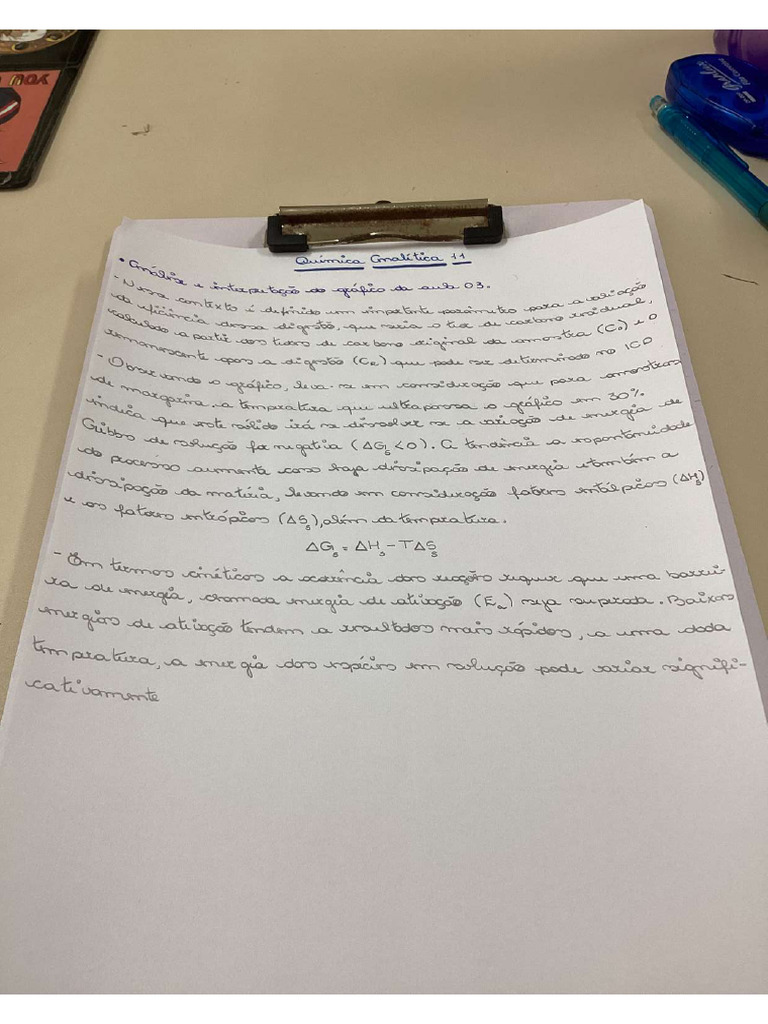 Química Analítica 11
• Análise e interpretação do gráfico da aula 03.
- Nesse contexto é definido um importante parâmetro para a avaliação
da eficiência dessa digestão, que seria o teor de carbono residual,
calculado a partir dos teores de carbono original da amostra (C₀) e o
remanescente após a digestão (Cᵣ) que pode ser determinado no ICO
- Observando o gráfico, leva-se em consideração que para amostras
de margarina, a temperatura que ultrapassa o gráfico em 30%
indica que este sólido irá se dissolver se a variação de energia de
Gibbs de solução for negativa (ΔGₛ<0). A tendência a espontaneidade
do processo aumenta caso haja dissipação de energia e também a
dissipação da matéria, levando em consideração fatores entálpicos (ΔHₛ)
e os fatores entrópicos (ΔSₛ), além da temperatura.
ΔGₛ = ΔHₛ - TΔSₛ
- Em termos cinéticos a ocorrência das reações requer que uma barrei-
ra de energia, chamada energia de ativação (Eₐ) seja superada. Baixas
energias de ativação tendem a resultados mais rápidos, a uma dada
temperatura, a energia das espécies em solução pode variar signifi-
cativamente
YOU